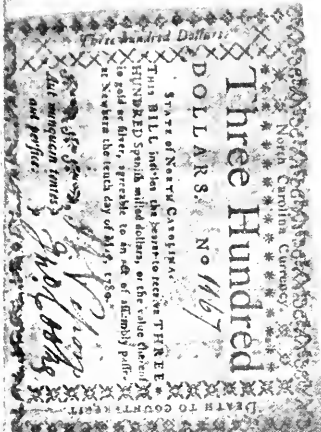 North Carolina Currency
Three Hundred
DOLLARS. No 4467
STATE of NORTH CAROLINA.
THIS BILL intitles the bearer to receive THREE
HUNDRED Spanish milled dollars, or the value thereof
in gold or silver, agreeable to an act of assembly passed
at Newbern the tenth day of May, 1780.
Aut nunquam tentes
aut perfice.
Three hundred Dollars.
DEATH TO COUNTERFEIT.